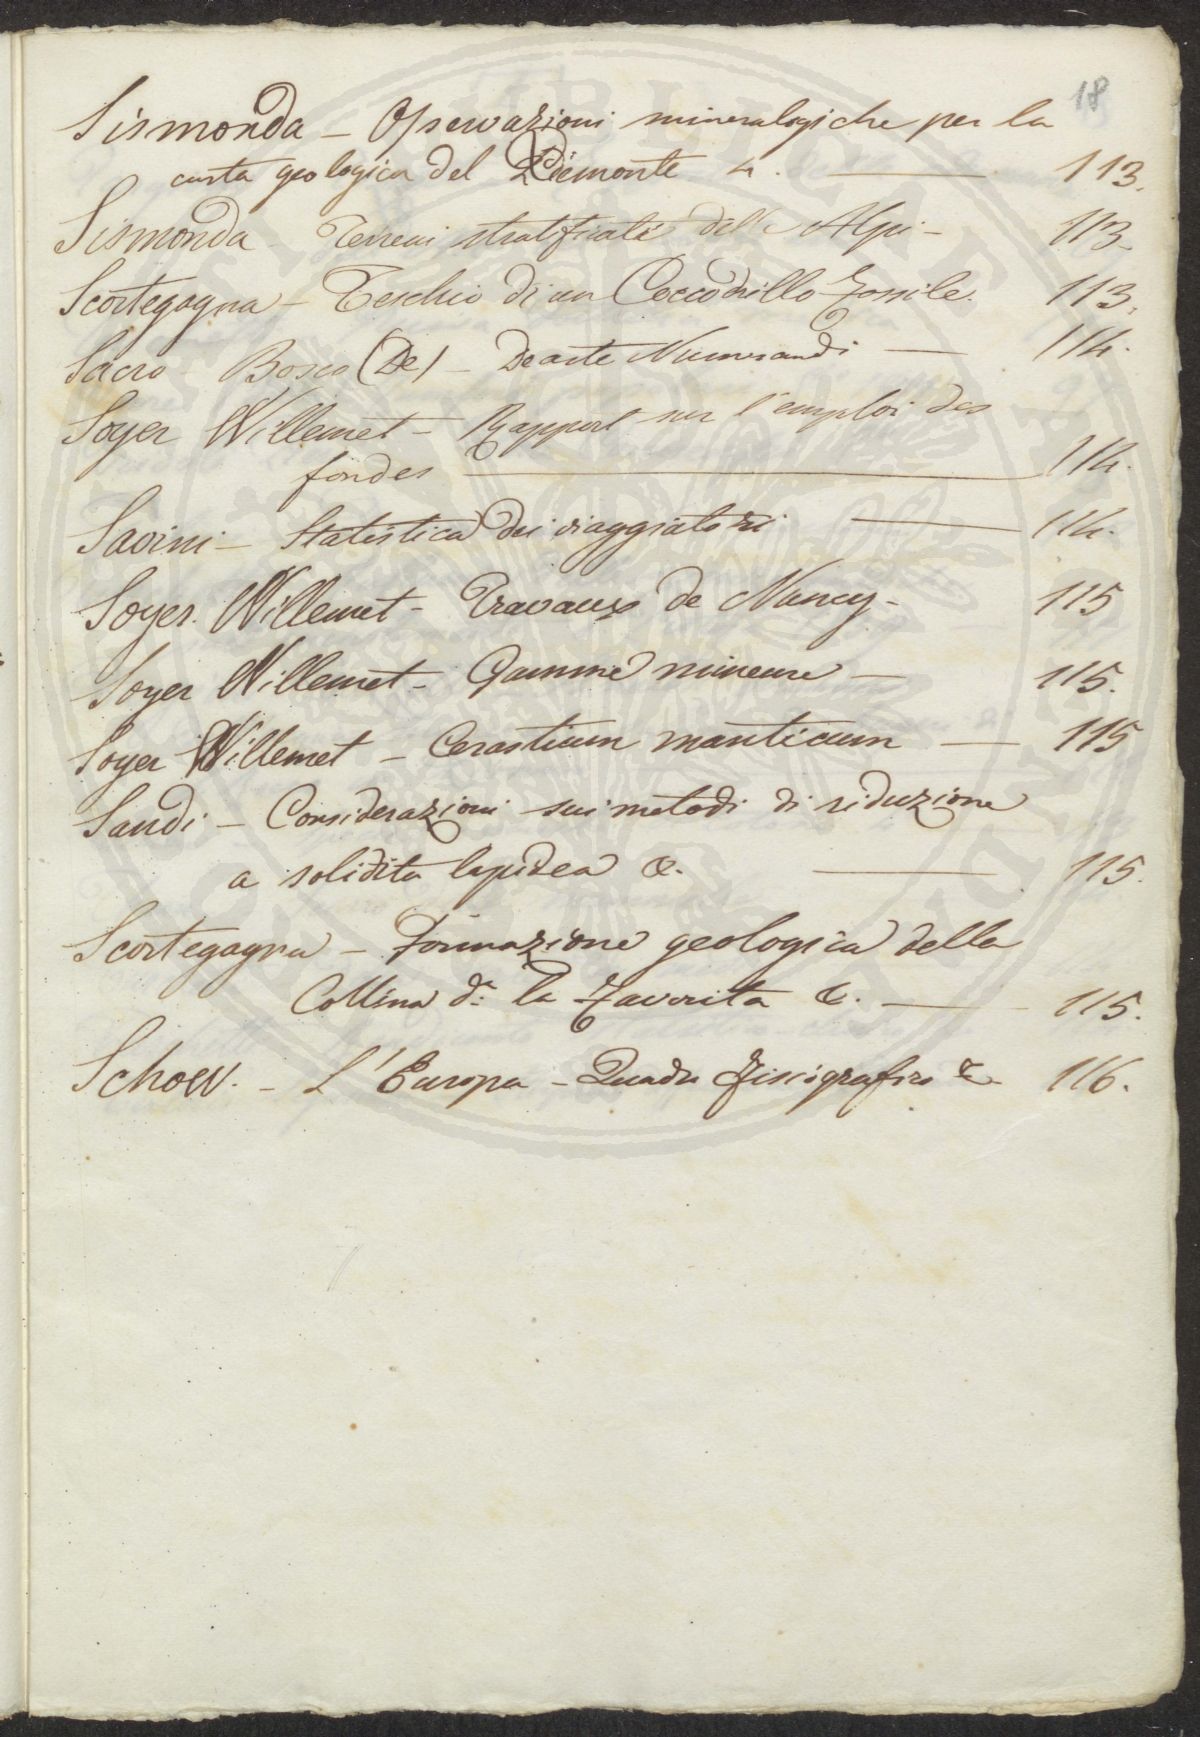 18
Sismonda - Osservazioni mineralogiche per la
carta geologica del Piemonte &. 113.
Sismonda - Terreni stratificati dell' Alpi - 113.
Scortegagna - Teschio di un Coccodrillo Fossile. 113.
Sacro Bosco (De) - De arte Numerandi — 114.
Soyer Willemet - Rapport sur l'emploi des
fondes — 114.
Savini - Statistica dei viaggiatori — 114.
Soyer. Willemet - Travaux de Nancy - 115
Soyer Willemet - Gamme mineure — 115.
Soyer Willemet - Cerastium manticum — 115
Sandi - Considerazioni sui metodi di riduzione
a solidita lapidea &. — 115.
Scortegagna - Formazione geologica della
Collina d: la Favorita &. — 115.
Schouv. - L'Europa - Quadro Fisiografico & 116.